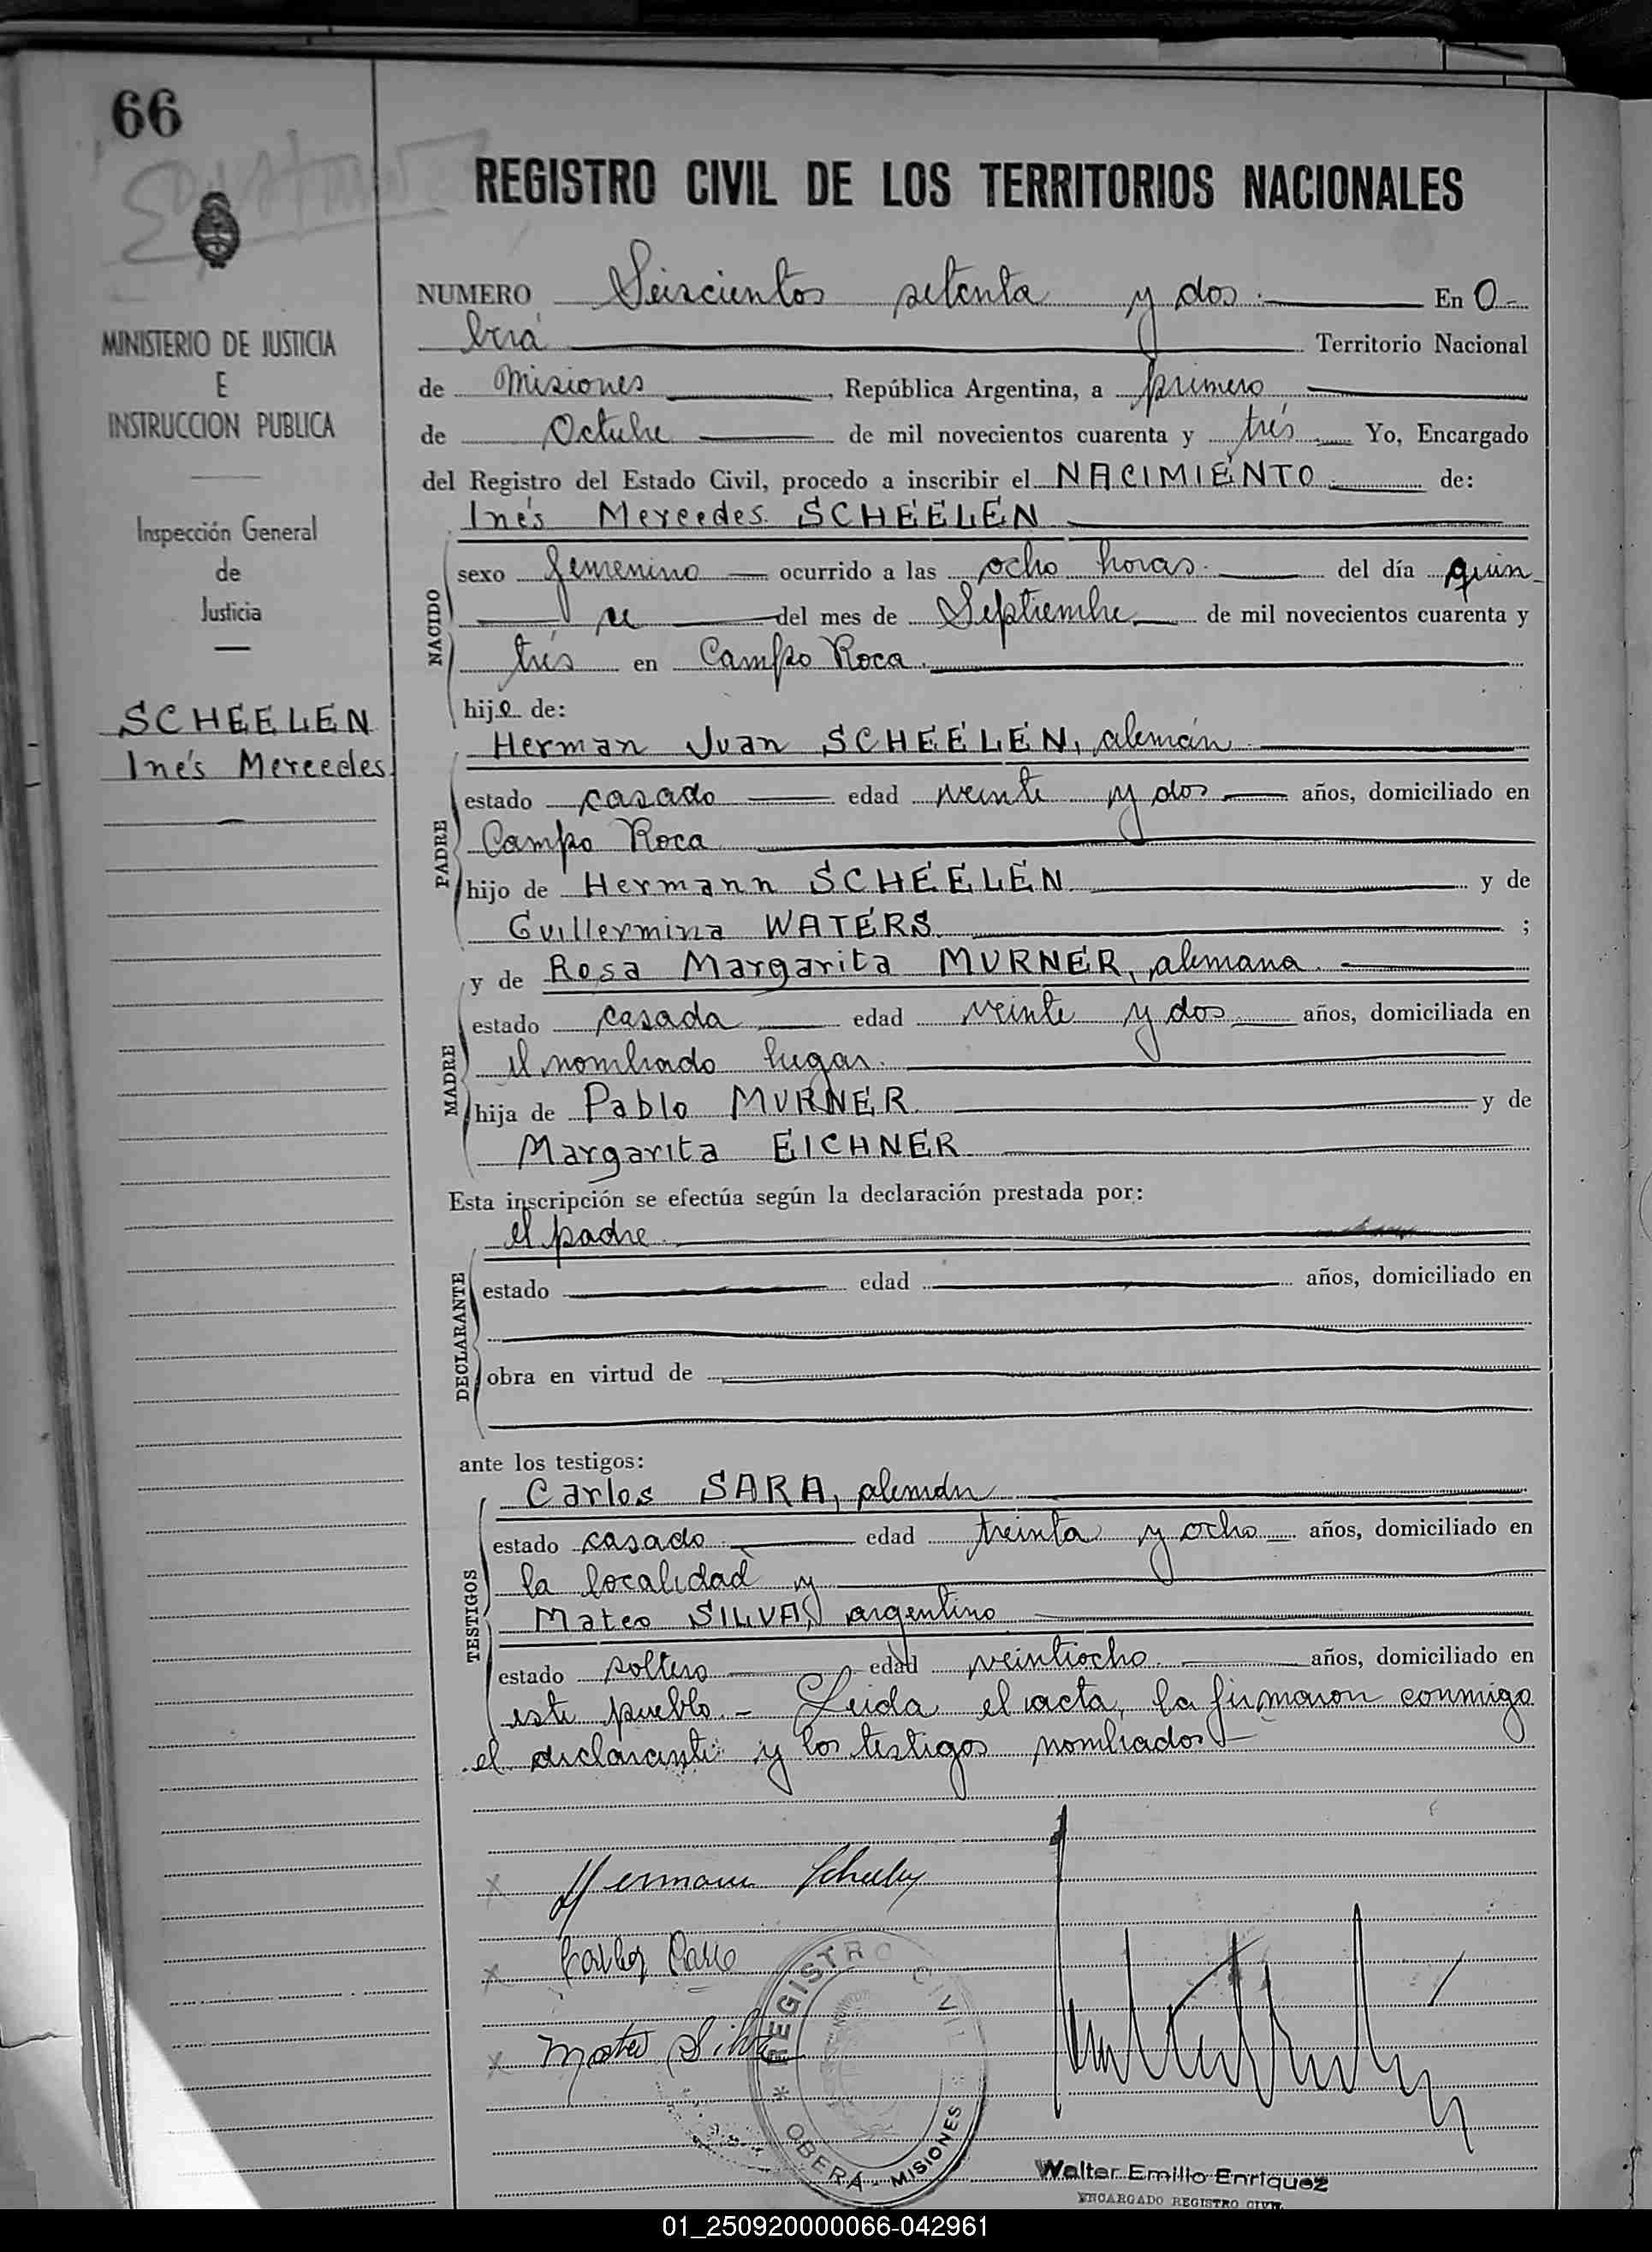 66
REGISTRO CIVIL DE LOS TERRITORIOS NACIONALES
MINISTERIO DE JUSTICIA
E
INSTRUCCION PUBLICA
Inspección General
de
Justicia
SCHEELEN
Inés Mercedes
NUMERO Seiscientos setenta y dos. En O-
berá Territorio Nacional
de Misiones, República Argentina, a primero
de Octubre de mil novecientos cuarenta y trés Yo, Encargado
del Registro del Estado Civil, procedo a inscribir el NACIMIENTO de:
Inés Mercedes SCHEELEN
NACIDO
sexo femenino ocurrido a las ocho horas. del día quin-
ce del mes de Septiembre de mil novecientos cuarenta y
trés en Campo Roca.
hija de:
PADRE
Herman Juan SCHEELEN, alemán
estado casado edad veinte y dos años, domiciliado en
Campo Roca
hijo de Hermann SCHEELEN y de
Guillermina WATERS ;
MADRE
y de Rosa Margarita MURNER, alemana.
estado casada edad veinte y dos años, domiciliada en
el nombrado lugar.
hija de Pablo MURNER y de
Margarita EICHNER
Esta inscripción se efectúa según la declaración prestada por:
DECLARANTE
el padre
estado edad años, domiciliado en
obra en virtud de
ante los testigos:
TESTIGOS
Carlos SARA, alemán
estado casado edad treinta y ocho años, domiciliado en
la localidad y
Mateo SILVA, argentino
estado soltero edad veintiocho años, domiciliado en
este pueblo.- Leida el acta, la firmaron conmigo
el declarante y los testigos nombrados-
Hermann
Carlos
Mateo Silva
REGISTRO CIVIL
* OBERÁ - MISIONES
Walter Emilio Enriquez
ENCARGADO REGISTRO CIVIL
01_250920000066-042961